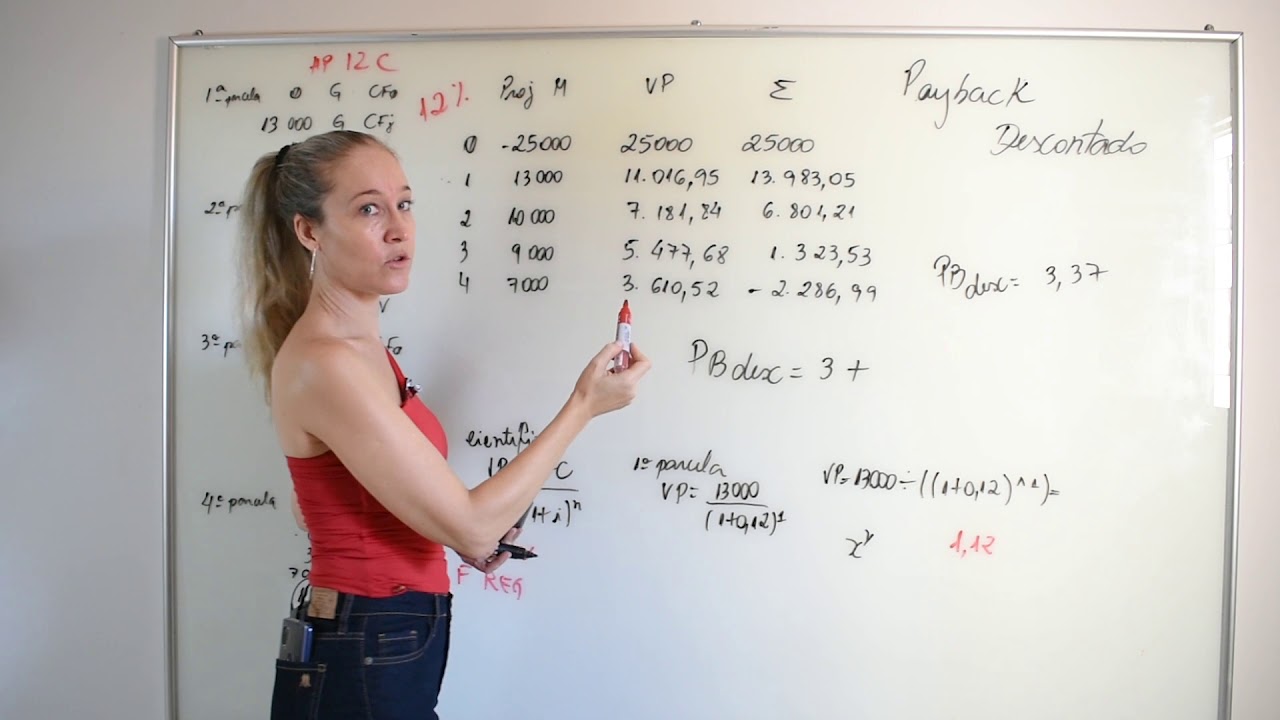 HP 12 C
1ª parcela 0 G CF0
13 000 G CFj
12%
Proj M VP Σ
0 -25000 25000 25000
1 13000 11.016,95 13.983,05
2 10 000 7.181,84 6.801,21
3 9 000 5.477,68 1.323,53
4 7000 3.610,52 -2.286,99
Payback
Descontado
PB desc = 3,37
PB desc = 3 +
2ª
3ª
4ª parcela
1ª parcela
VP = 13000
(1+0,12)^1
VP = 13000 ÷ ((1+0,12)^1)=
x^y 1,12
F REG